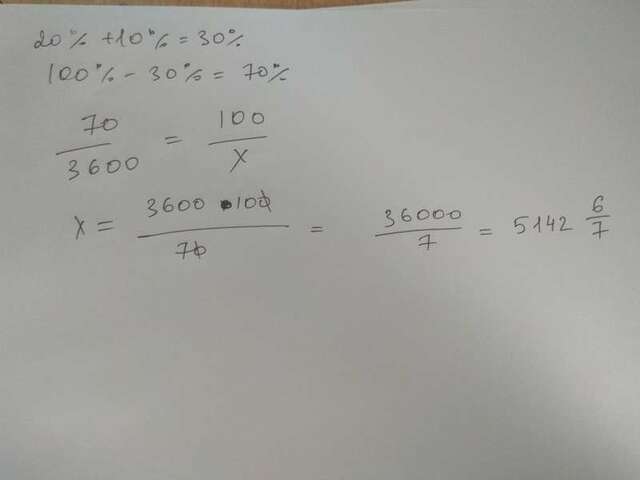 20% + 10% = 30%
100% - 30% = 70%
70/3600 = 100/x
x = 3600 · 100/70 = 36000/7 = 5142 6/7